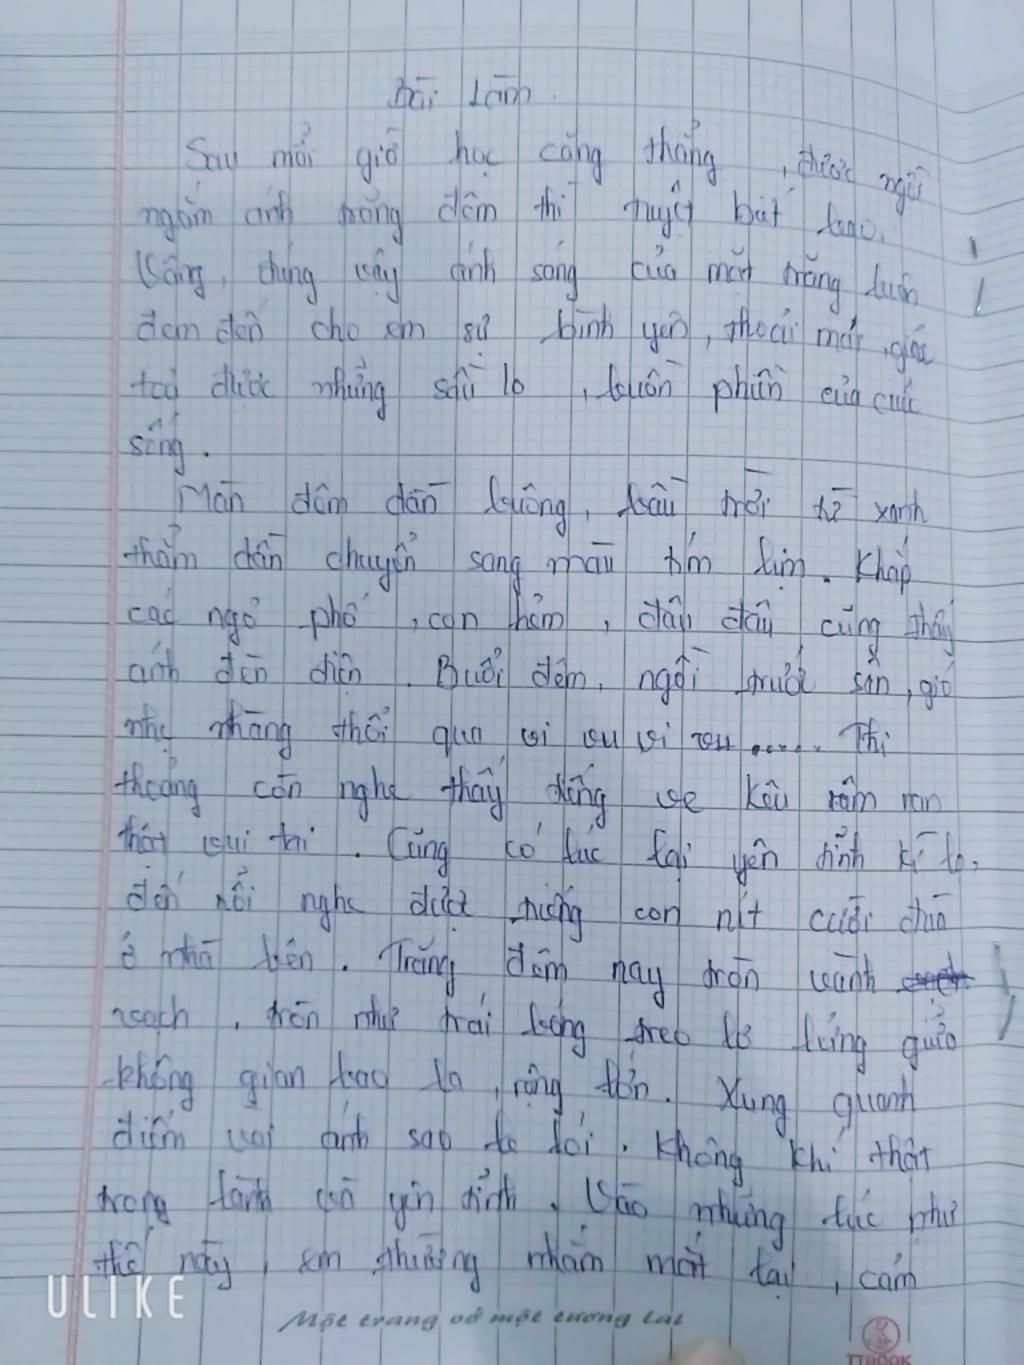 Bài Làm.
Sau mỗi giờ học căng thẳng, được ngồi
ngắm ánh trăng đêm thì tuyệt biết bao.
Vâng, đúng vậy ánh sáng của mặt trăng luôn
đem đến cho em sự bình yên, thoải mái, giải
toả được những sầu lo, buồn phiền của cuộc
sống.
Màn đêm dần buông, bầu trời từ xanh
thẩm dần chuyển sang màu tím lịm. Khắp
các ngỏ phố, con hẻm, đâu đâu cũng thấy
ánh đèn điện. Buổi đêm, ngồi trước sân, gió
nhẹ nhàng thổi qua vi vu vi vu...... Thi
thoảng còn nghe thấy tiếng ve kêu râm ran
thật vui tai. Cũng có lúc lại yên tỉnh kì lạ,
đến nổi nghe được tiếng con nít cười đùa
ở nhà bên. Trăng đêm nay tròn vành
vạch, tròn như trái bóng treo lơ lửng giữa
không gian bao la, rộng lớn. Xung quanh
điểm vài ánh sao le lói. Không khí thật
trong lành và yên tỉnh. Vào những lúc như
thế này, em thường nhắm mắt lại, cảm
Một trang vở một tương lai
TTBOOK
ULIKE